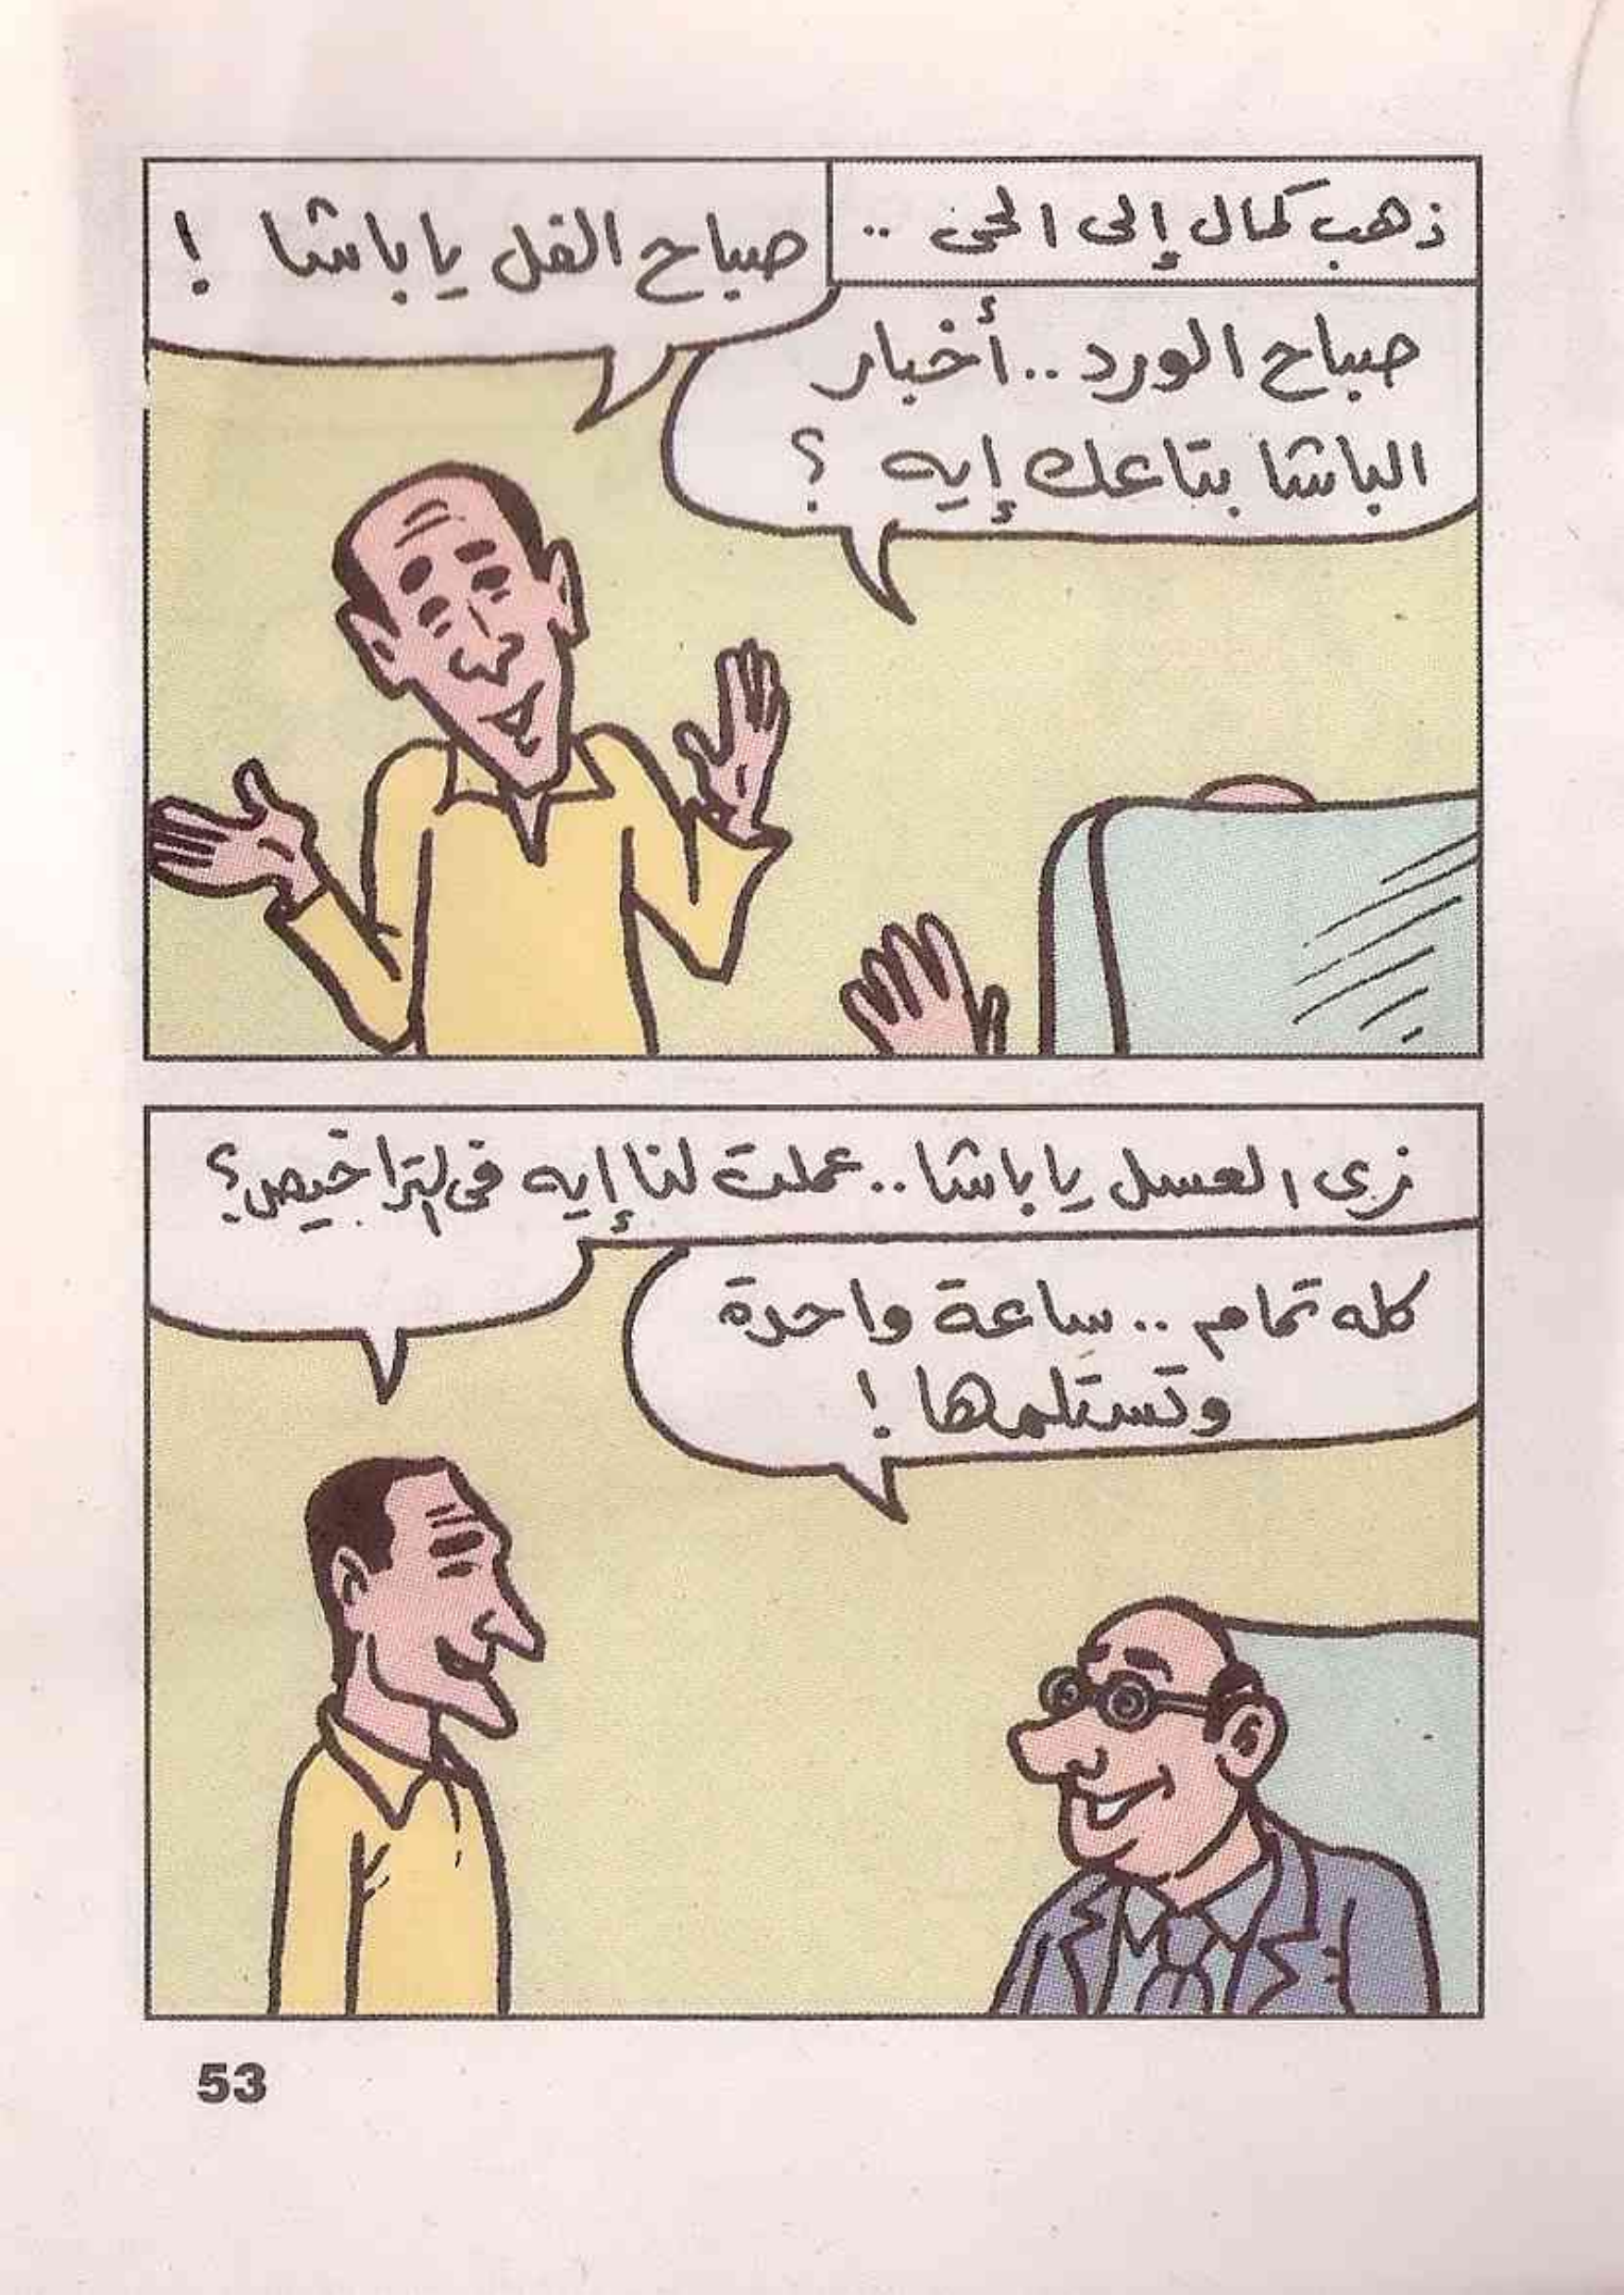 ذهب كمال إلى الحى ..
صباح الفل يا باشا !
صباح الورد .. أخبار
الباشا بتاعك إيه ؟
زى العسل يا باشا .. عملت لنا إيه فى التراخيص؟
كله تمام .. ساعة واحدة
وتستلمها !
53